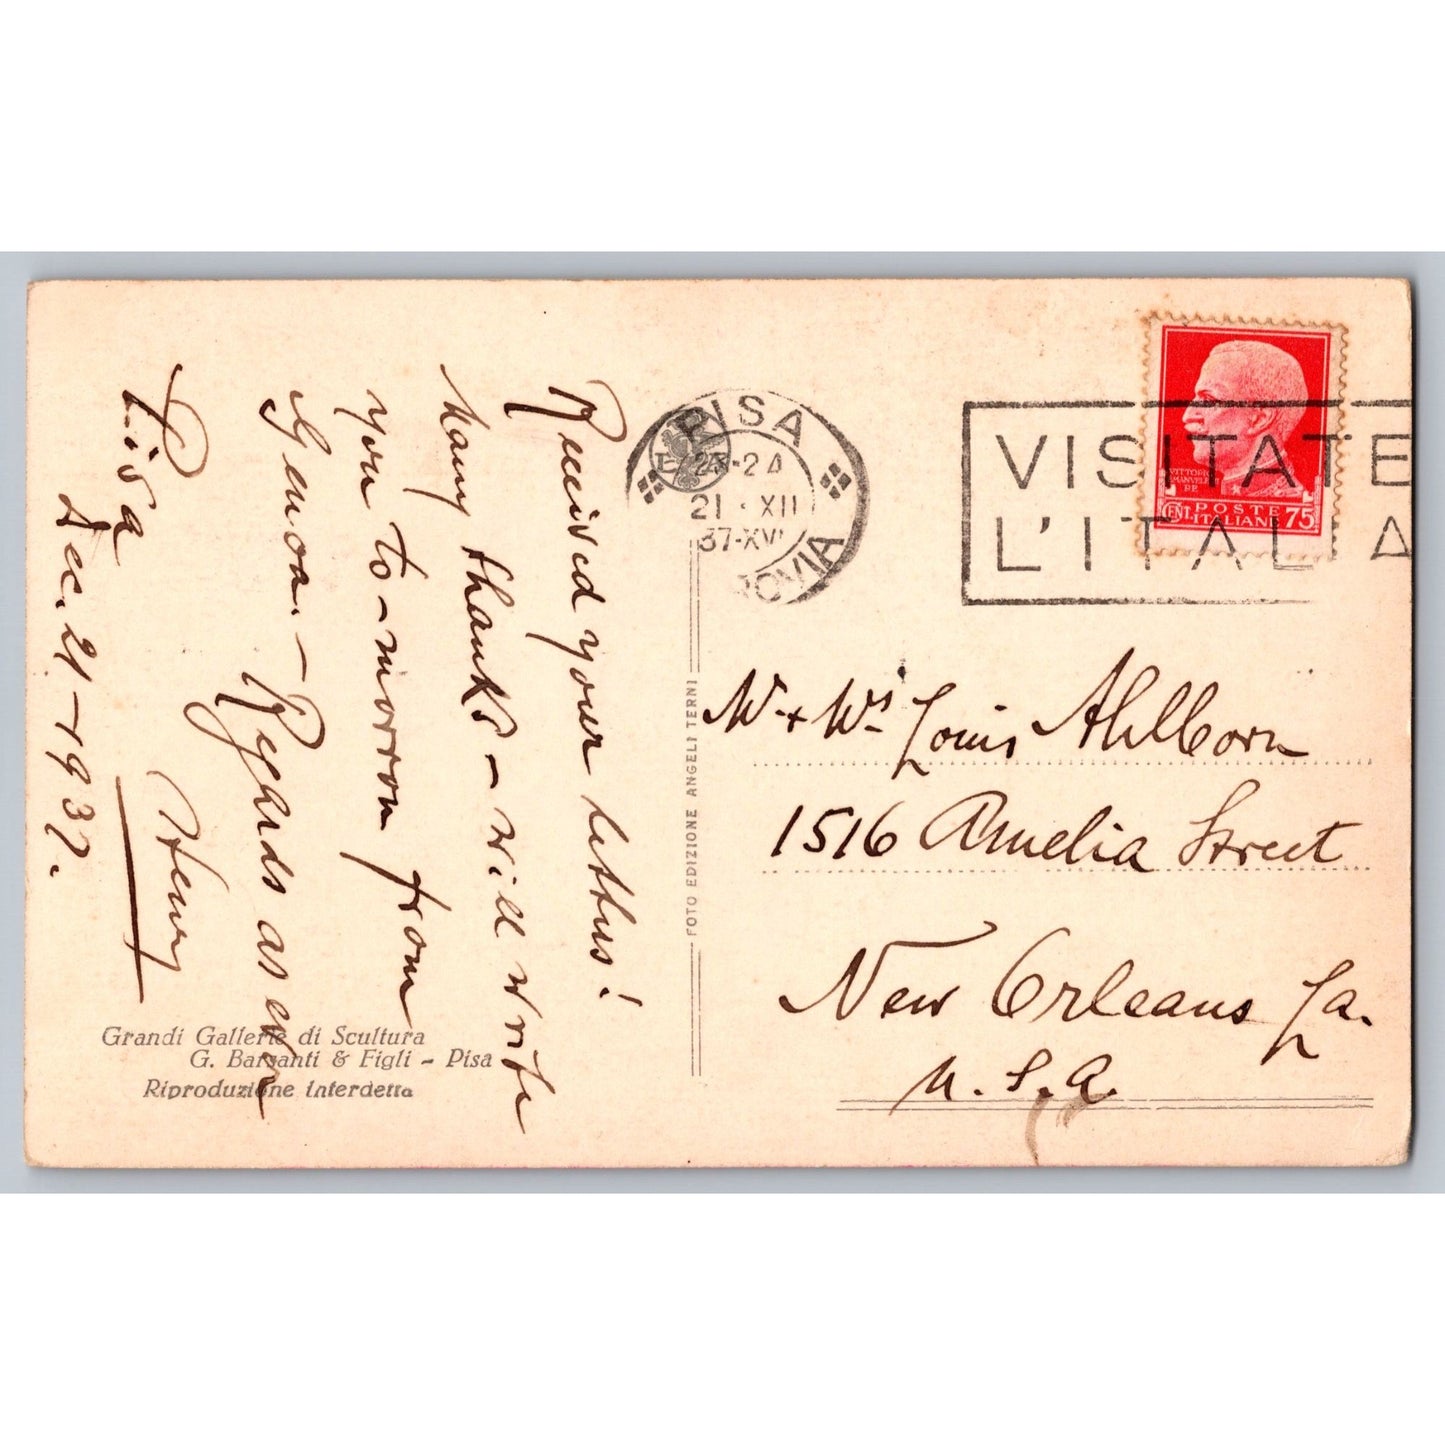 Received your letters!
Many thanks – will write
you to-morrow from
Genoa. – Regards as ever
Henry
Pisa
Dec. 21-1937.
Grandi Gallerie di Scultura
G. Barsanti & Figli - Pisa
Riproduzione Interdetta
FOTO EDIZIONE ANGELI TERNI
PISA
23-24
21 · XII
37-XVI
VISITATE
L'ITALIA
VITTORIO
EMANUELE
RE
POSTE
CENT. ITALIANE 75
Mr + Mrs Louis Ahlborn
1516 Amelia Street
New Orleans La.
U.S.A.